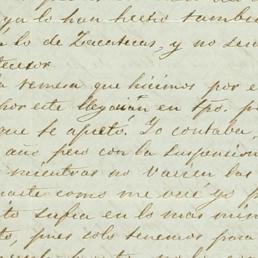 ya lo han hecho tambien
lo de Zacatecas, y no se
tecesor
a remesa que hicimos por e
por este llegaran en tpo. p
que te apretó. Yo contaba,
año pero con la suspension
mientras no varien las
como me veré yo p
sufra en lo mas min
to, pues solo tenemos para